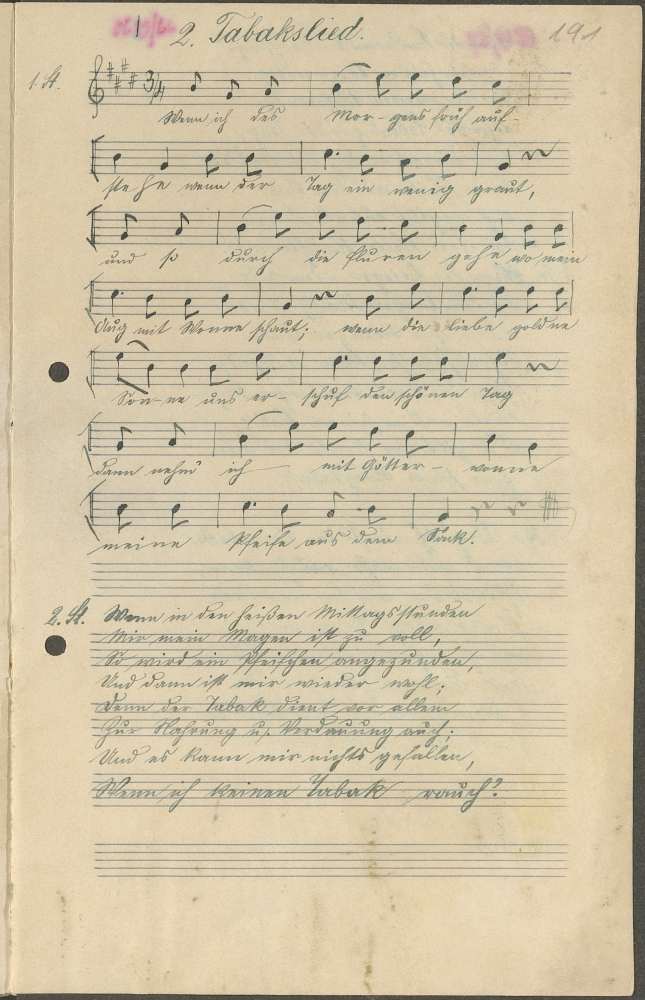 2. Tabakslied.
191
1. St.
3/4
Wenn ich des Mor- gens früh auf-
ste he wenn der Tag ein wenig graut,
und so durch die Fluren gehe wo mein
Aug mit Wonne schaut; wenn die liebe goldne
Son-ne uns er- schuf den schönen Tag
dann nehm' ich mit Götter- wonne
meine Pfeife aus dem Sack.
2. St. Wenn in den heißen Mittagsstunden
Mir mein Magen ist zu voll,
So wird ein Pfeifchen angezunden,
Und dann ist mir wieder wohl;
Denn der Tabak dient vor allem
Zur Nahrung u. Verdauung auch;
Und es kann mir nichts gefallen,
Wenn ich keinen Tabak rauch'!